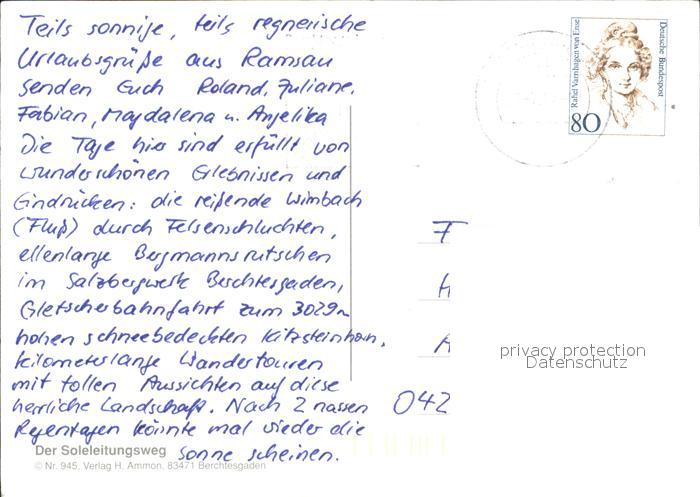 Teils sonnige, teils regnerische
Urlaubsgrüße aus Ramsau
senden Euch Roland, Juliane,
Fabian, Magdalena u. Angelika
Die Tage hier sind erfüllt von
wunderschönen Erlebnissen und
Eindrücken: die reißende Wimbach
(Fluß) durch Felsenschluchten,
ellenlange Bergmannsrutschen
im Salzbergwerk Berchtesgaden,
Gletscherbahnfahrt zum 3029m
hohen schneebedeckten Kitzsteinhorn,
kilometerlange Wandertouren
mit tollen Aussichten auf diese
herrliche Landschaft. Nach 2 nassen
Regentagen könnte mal wieder die
Sonne scheinen.
Der Soleleitungsweg
© Nr. 945, Verlag H. Ammon, 83471 Berchtesgaden
Rahel Varnhagen von Ense
Deutsche Bundespost
80
F
H
A
042
privacy protection
Datenschutz